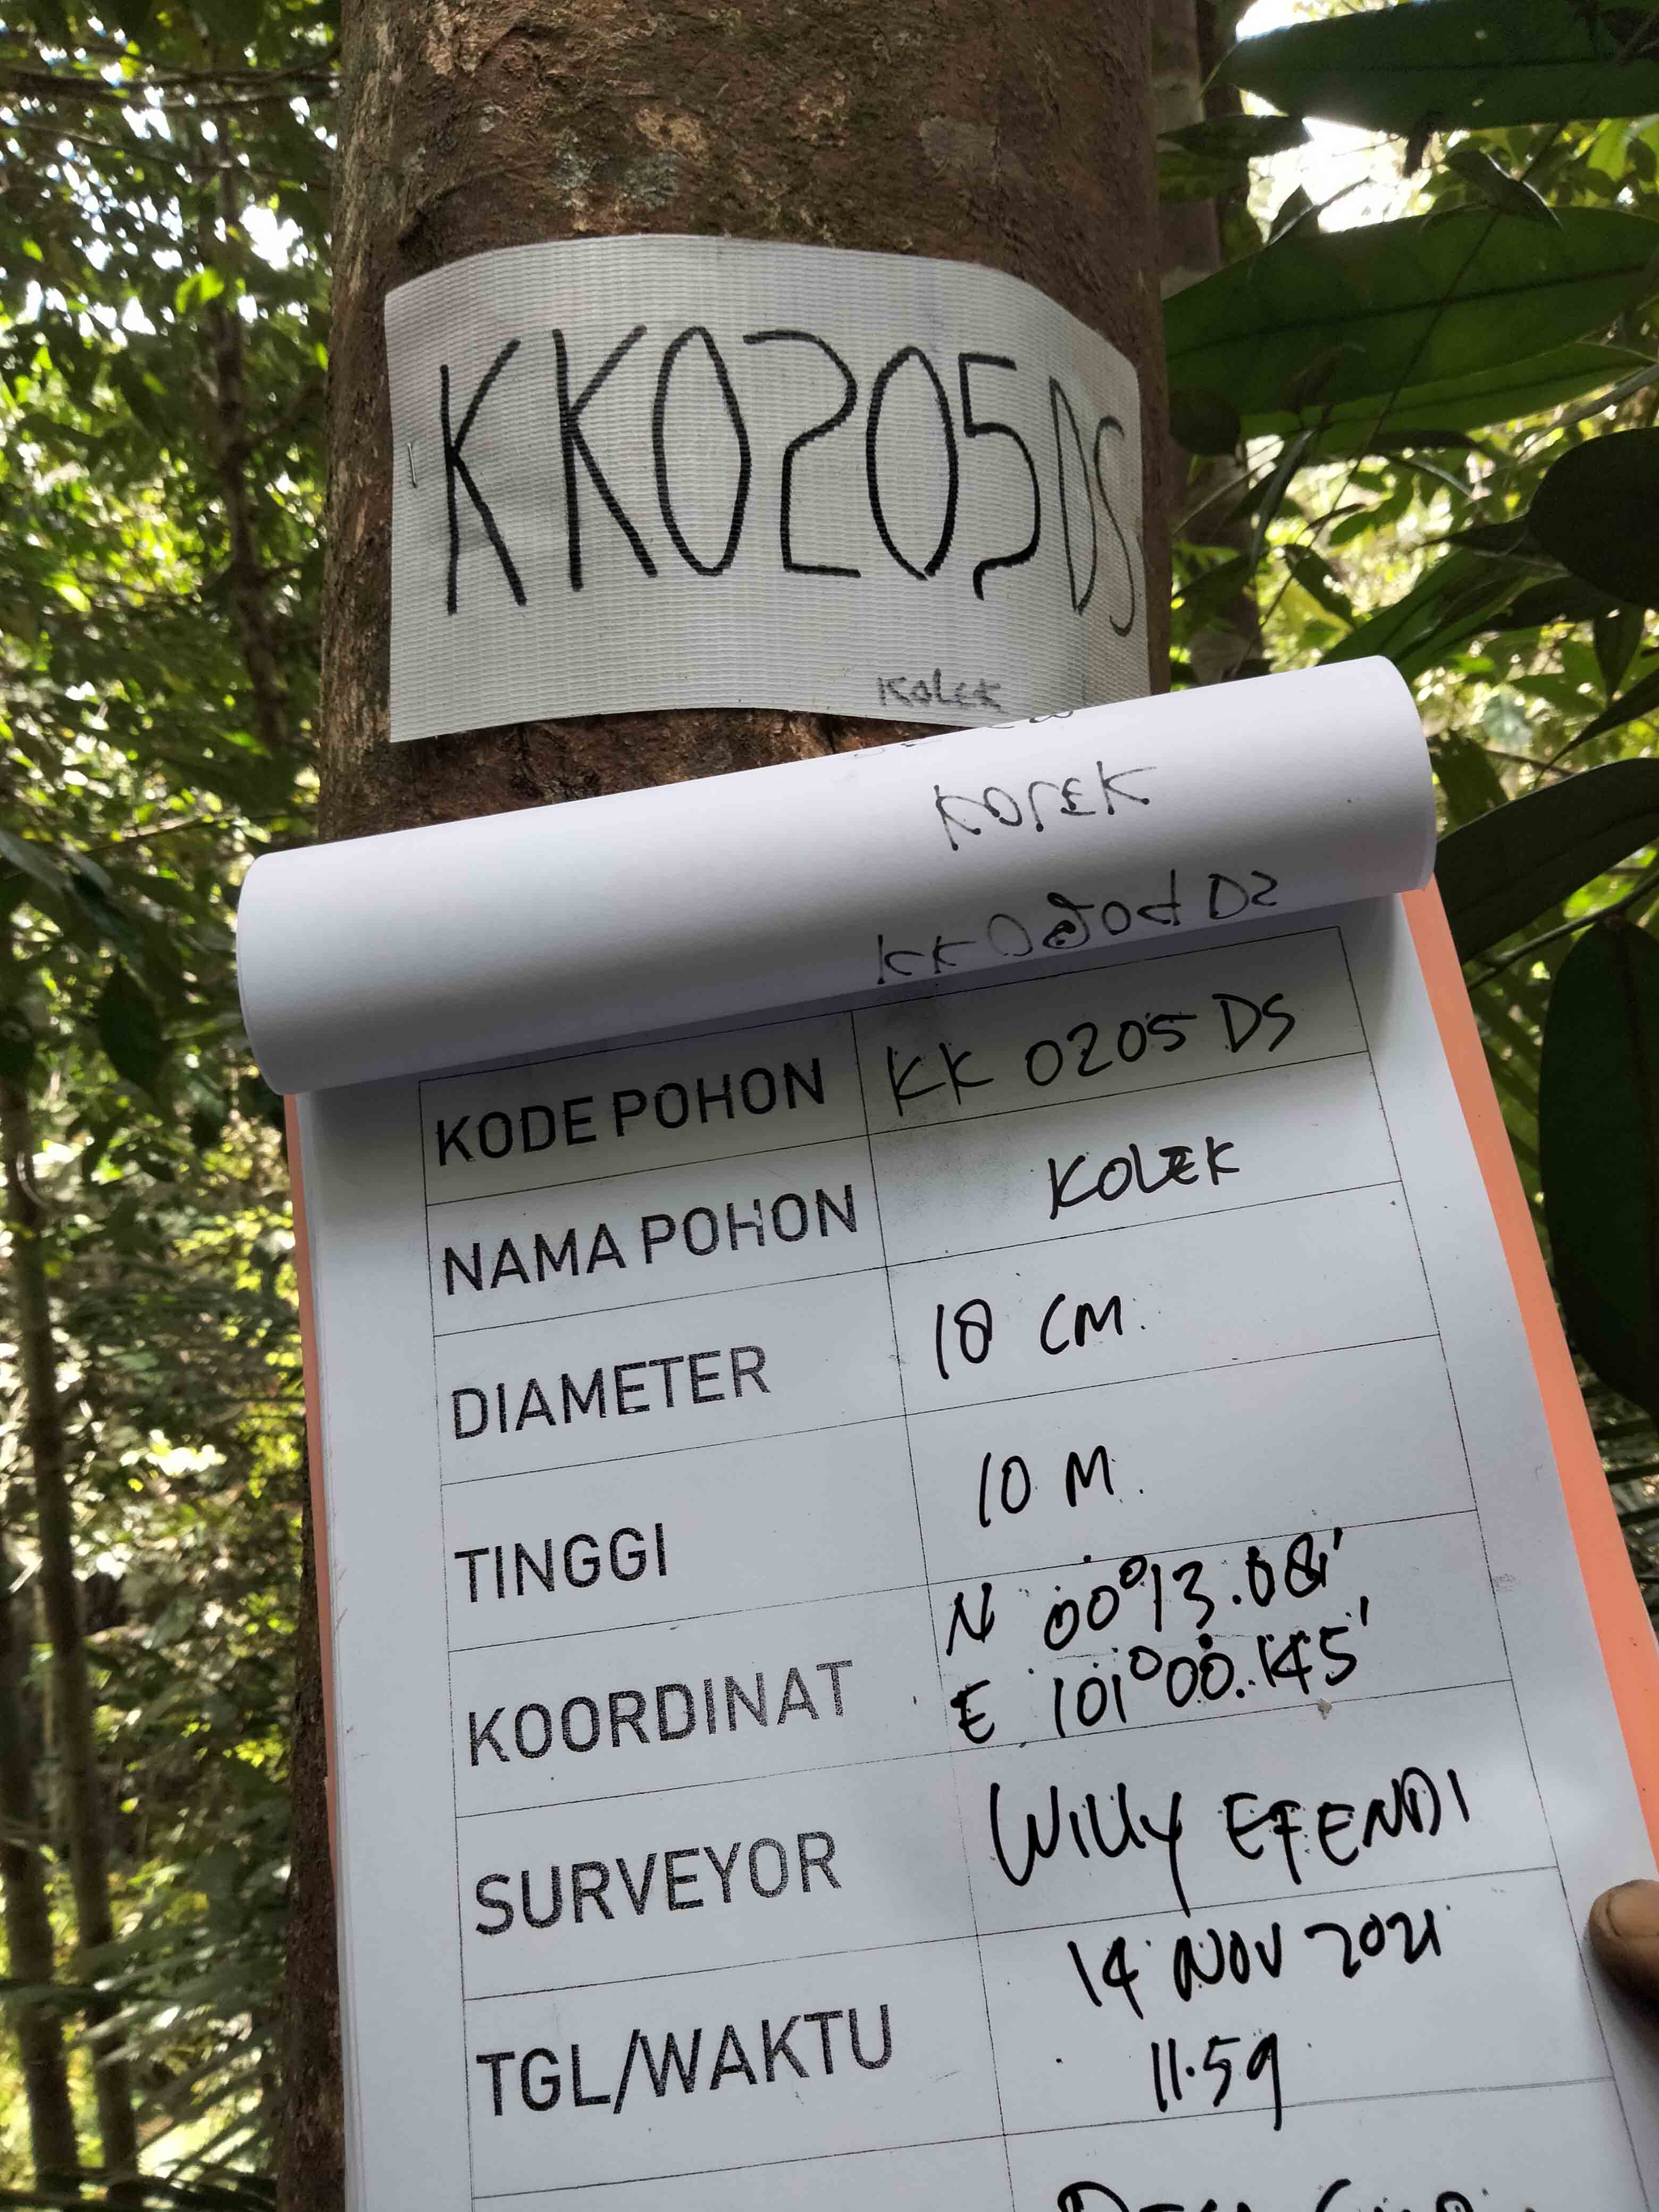 KK0205DS
KOLEK
KODE POHON KK 0205 DS
NAMA POHON KOLEK
DIAMETER 18 CM.
TINGGI 10 M.
KOORDINAT N 00°13.081'
E 101°00.145'
SURVEYOR WILLY EFENDI
TGL/WAKTU 14 NOV 2021
11.59